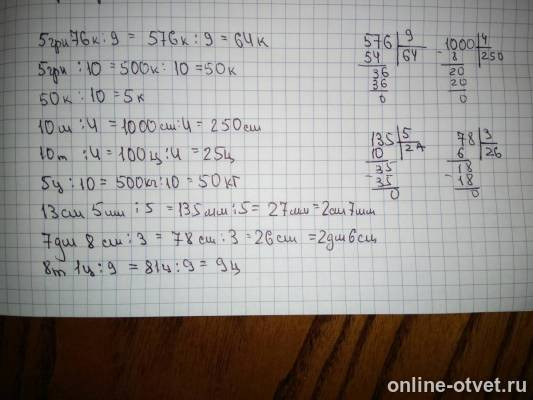 5грн76к:9 = 576к:9 = 64к
5грн:10 = 500к:10 = 50к
50к:10 = 5к
10м:4 = 1000см:4 = 250см
10т:4 = 100ц:4 = 25ц
5ц:10 = 500кг:10 = 50кг
13см 5мм:5 = 135мм:5 = 27мм = 2см7мм
7дм 8см:3 = 78см:3 = 26см = 2дм6см
8т 1ц:9 = 81ц:9 = 9ц
576 | 9
54 | 64
36
36
0
1000 | 4
- 8 | 250
20
20
0
135 | 5
10 | 27
- 35
35
0
78 | 3
6 | 26
- 18
18
0
online-otvet.ru